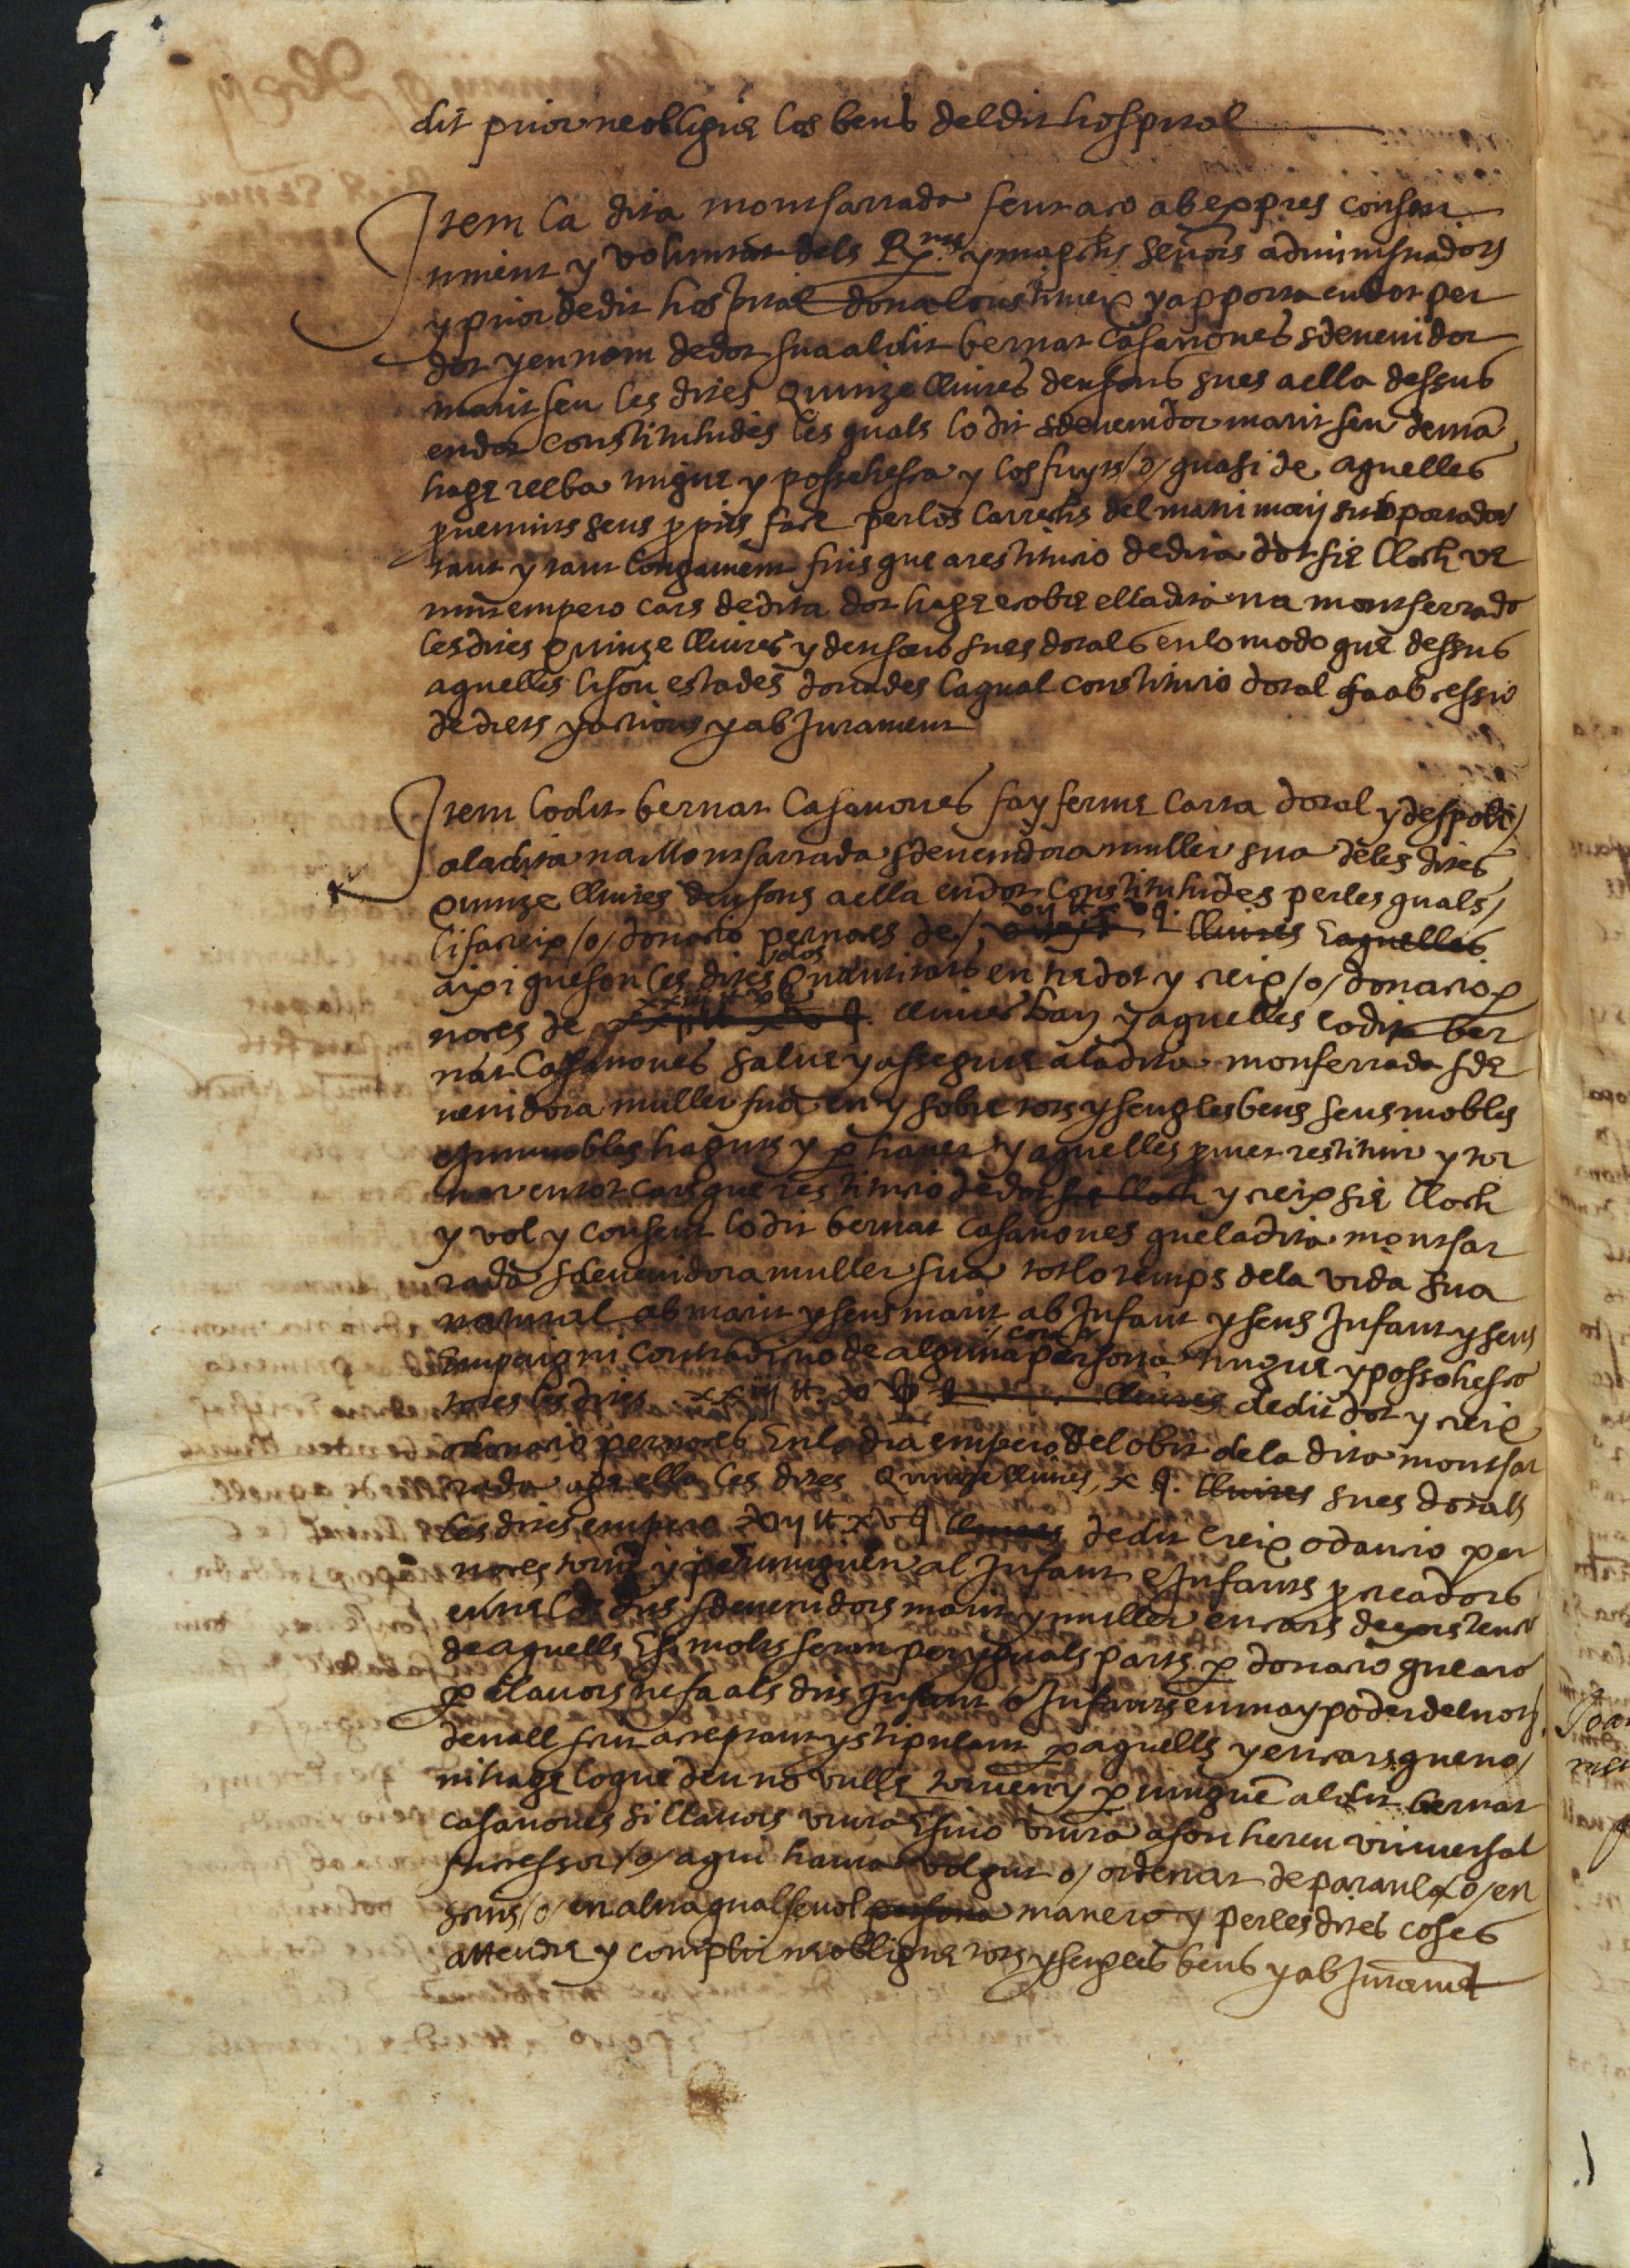 dit prior ne obligue los bens del dit hospital
Item la dita montsarrada fent aço ab expres consen
timent y voluntat dels R.ts y mag.chs señors administradors
y prior de dit hospital dona constitueix y apporta en dot per
dot y en nom de dot sua al dit bernat Casanoves sdevenidor
marit seu les dites Quinze lliures de sous sues a ella dessus
en dot constituhides les quals lo dit sdevenidor marit seu dema
hage reeba tingue y possehesca y los fruyts /o/ quasi de aquelles
pvenints seus ppris face per los carrechs del matrimonj supportador
tant y tant longament fins que a restitucio de dita dot sie lloch ve
nint empero cars de dita dot hage e cobre ella dita na montserrada
les dites Quinze lliures y deu sous sues dotals en lo modo que dessus
aquelles li son estades donades la qual constitucio dotal fa ab cessio
de drets y actions y ab Jurament
Item lo dit bernat Casanoves fa y ferme Carta dotal y de spoli/
a la dita na Montsarrada sdevenidora muller sua de les dites
Quinze lliures deu sous a ella en dot Constituhides per les quals/
li fa creix /o/ donacio per noces de / vij ℔ x v q. lliures E aquelles
aixi que son les dites dos Quantitats en tre dot y creix /o/ donacio p
noces de xxiij ℔ xv q. lliures bar.s y aquelles lo dit ber
nat Casanoves salve y assegure a la dita monserrada sde
venidora muller sua en y sobre tots y sengles bens seus mobles
e Immobles haguts y p haver y aquelles pmet restituir y tor
nar en tot cars que restitucio de dot sie lloch y creix sie lloch
y vol y consent lo dit bernat Casanoves que la dita montsar
rada sdevenidora muller sua tot lo temps de la vida sua
natural ab marit y sens marit ab Infant y sens Infant y sens
empaig ni contradictio de alguna persona tingue y possehesca
totes les dites xxiij ℔ xv q lliures de dit dot y creix
o donacio per noces En lo dia empero del obit de la dita montsar
rada age ella les dites Quinze lliures, x q. lliures sues dotals
les dites empero vij ℔ xv q lliures de dit Creix o donacio per
noces torn y pervinguen al Infant e Infants pcreadors
entre los dits sdevenidors marit y muller en cars de existencia
de aquells E si molts seran per yguals parts p donacio que aro
p llavors ne fa als dits Infant o Infants en ma y poder del not.
devall scrit acceptant y stipulant p aquells y en cars que no/
ni hage lo que deu no vulle torn y pvingue al dit bernat
Casanoves si llavors viura E si no viura a son hereu universal
successor /o/ a qui haura volgut o/ ordenat de paraula /o/ en
scrits /o/ en altra qualsevol persona manera y per les dites coses
attendre y complir ne obligue tots y sengles bens y ab Jurament